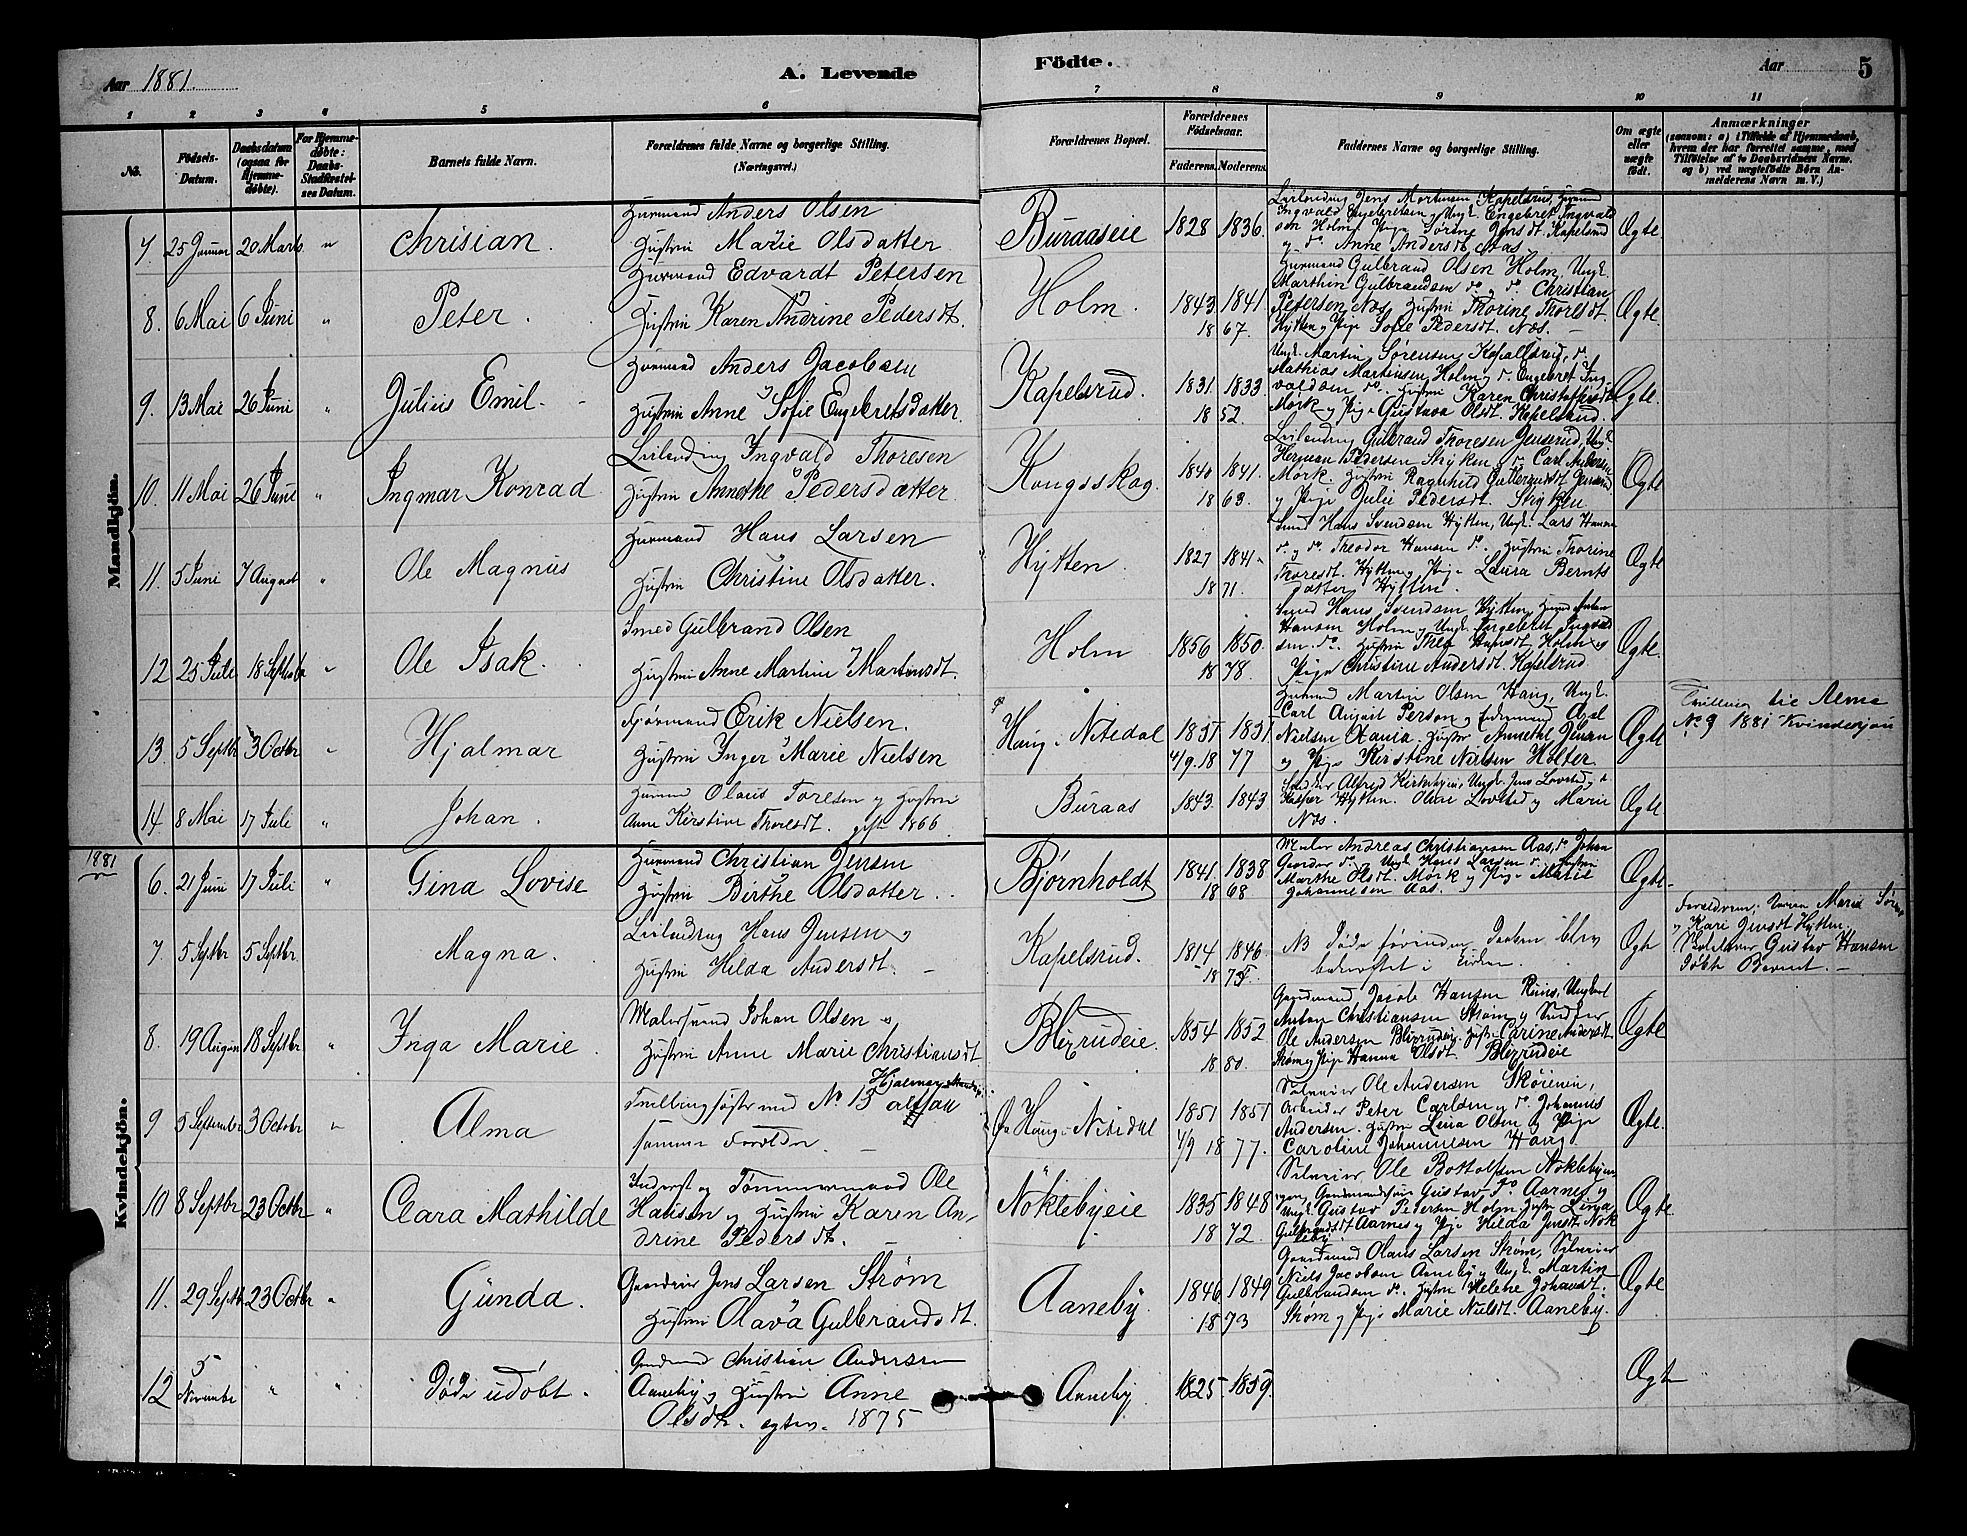 Aar 1881.
A. Levende
Födte.
Aar
5
1 2 3 4 5 6 7 8 9 10 11
No.
Födsels-
Datum.
Daabsdatum
(ogsaa for
Hjemme-
döbte).
For Hjemme-
döbte:
Daabs-
Stadfæstel-
ses Datum.
Barnets fulde Navn.
Forældrenes fulde Navne og borgerlige Stilling.
(Næringsvei.)
Forældrenes Bopæl.
Forældrenes
Födselsaar.
Faderens. Moderens.
Faddernes Navne og borgerlige Stilling.
Om ægte
eller
uægte
födt.
Anmærkninger
(saasom: a) i Tilfælde af Hjemmedaab,
hvem der har forrettet samme, med
Tilföielse af to Daabsvidners Navne.
og b) ved uægtefödte Börn An-
melderens Navn m. V.)
Mandkjön.
7. 25 Januar 20 Marts " Chrisian.
Huusmand Anders Olsen
Hustru Marie Olsdatter
Buraaseie 1828 1836.
Leilending Jens Mortensen Kapelsrud, Huusmd
Ingvald Engebretsen, Ungk. Engebret Ingvald
sen Holm, Pige Sørine Jensdt. Kapelsrud
og do. Anne Andersdt. Aas
Ægte
8. 6 Mai 6 Juni " Peter.
Huusmand Edvardt Petersen
Hustru Karen Andrine Pedersdt.
Holm. 1843. 1841
18 67.
Huusmand Gulbrand Olsen Holm. Ungk.
Marthin Gulbrandsen do. og do. Christian
Petersen Næs. Hustru Thorine Thoresdt.
Hytten og Pige Sofie Pedersdt. Næs.
Ægte.
9. 13 Mai 26 Juni " Julius Emil.
Huusmand Anders Jacobsen
Hustru Anne Sofie Engebretsdatter.
Kapelsrud. 1831. 1833
18 52.
Ungk. Martin Sørensen Kapellsrud, do.
Mathias Martinsen Holm, do. Engebret Ing-
valdsen do. Hustru Karen Christofersdt.
Mörk og Pige Gustava Olsdt. Kapelsrud.
Ægte.
10. 11 Mai 26 Juni " Ingmar Konrad
Leilending Ingvald Thoresen
Hustru Annethe Pedersdatter.
Kongsskog. 1840 1841.
18 63.
Leilending Gulbrand Thoresen Jenserud, Ungk.
Herman Pedersen Styken, do. Carl Andersen
Mörk. Hustru Ragnhild Gulbrandsdt. Jenserud
og Pige Julie Pedersdt. Styken
Ægte
11. 5 Juni 7 August " Ole Magnus
Huusmand Hans Larsen
Hustru Christine Olsdatter.
Hytten. 1827 1841
18 71.
Smed Hans Svendsen Hytten, Ungk. Lars Hansen
do. og do. Theodor Hansen do. Hustru Thorine
Thoresdt. Hytten og Pige Laura Bernts
datter Hytten.
Ægte
12 25 Juli 18 Septbr " Ole Isak.
Smed Gulbrand Olsen
Hustru Anne Martine Martinsdt.
Holm 1856 1850.
18 78.
Smed Hans Svendsen Hytten, Huusmd Anton
Hansen Holm og Ungk. Engebret Ingvald
sen do. Hustru Thea Hansdt. Holm og
Pige Christine Andersdt. Kapelsrud
Ægte.
13. 5 Septbr 3 Octbr " Hjalmar
Kjörmand Erik Nielsen.
Hustru Inger Marie Nielsen
Haug i Nitedal 1851 1851
4/9. 18 77
Huusmd Martin Olsen Haug, Ungk.
Carl August Person, Axel
Nielsen Hustru Annethe Jensen
og Pige Kirstine Nielsen Holter.
Ægte
Tvilling til Alma
No 9 1881 Kvindekjön
14 8 Mai 17 Juli " Johan.
Huusmd Olaus Toresen og Hustru
Anne Kirstine Thoresdt. gifte 1866
Buraas 1843. 1843
Alfred Ungk. Jens Lovsted, do.
Kasper Hytten. Oline Lovsted og Marie
Næs.
Ægte
Kvindekjön.
1881
6. 21 Juni 17 Juli " Gina Lovise
Huusmand Christian Jensen
Hustru Birthe Olsdatter.
Bjørnholdt 1841. 1838
18 68
Maler Andreas Christiansen Aas, do. Johan
do. og Ungk. Hans Larsen do. Hustru
Marthe Olsdt. Mörk og Pige Matie
Johannesen Aas.
Ægte.
7. 5 Septbr 5 Septbr. Magna.
Leilending Hans Jensen og
Hustru Hilda Andersdt.
Kapelsrud. 1814 1846
18 75.
NB Döde förinden Daaben blev
bekræftet i Kirken.
Ægte
Forældrene, Marie
og Kari Jensdt Hytten.
Gustav Hansen
döbte Barnet.
8. 19 August 18 Septbr " Inga Marie.
Malersvend Johan Olsen og
Hustru Anne Marie Christiansdt
Blixrudeie. 1854 1852
18 80.
Gaardmand Jacob Hansen Ungkarl
Anton Christiansen Strøm og
Ole Andersen Blixrudeie. Hustru Carine Andersdt
Strøm og Pige Hanna Olsdt. Blixrudeie
Ægte
9 5 September 3 Octobr " Alma
Tvillingsøster med No 13 Hjalmar Mandkj. altsaa
samme Foreldre
Fra Haug i Nitedal 1851 1851
4/9 18 77.
Selveier Ole Andersen Skøien,
Arbeider Peter Carlsen og do. Johannes
Andersen. Hustru Lina Olsen og Pige
Caroline Johannesen Haug.
Ægte.
10 8 Septbr 23 Octbr " Clara Mathilde
Inderst og Tömmermand Ole
Hansen og Hustru Karen An-
drine Pedersdt.
Nöklebyeie 1835 1848
18 72.
Selveier Ole Bottolfsen Nöklebyeie
Gaardmandssøn Gustav do. Aarnes og
Ungk. Gustav Petersen Holm. Hustru Lina
Gulbrandsdt Aarnes og Pige Hilda Jensdt Nök
leby.
Ægte
11. 29 Septbr 23 Octbr " Gunda.
Gaardeier Jens Larsen Strøm
Hustru Olava Gulbrandsdt.
Aaneby. 1846 1849
18 73
Gaardmand Olaus Larsen Strøm, Selveier
Niels Jacobsen Aaneby, Ungk. Martin
Gulbrandsen do. Hustru Helene Johansdt.
Strøm og Pige Marie Nielsdt. Aaneby.
Ægte
12 5 Novembr " " Döde udöbt.
Gaardmand Christian Andersen
Aaneby og Hustru Anne
Olsdt. egtev. 1875
Aaneby 1825 1859.
Ægte